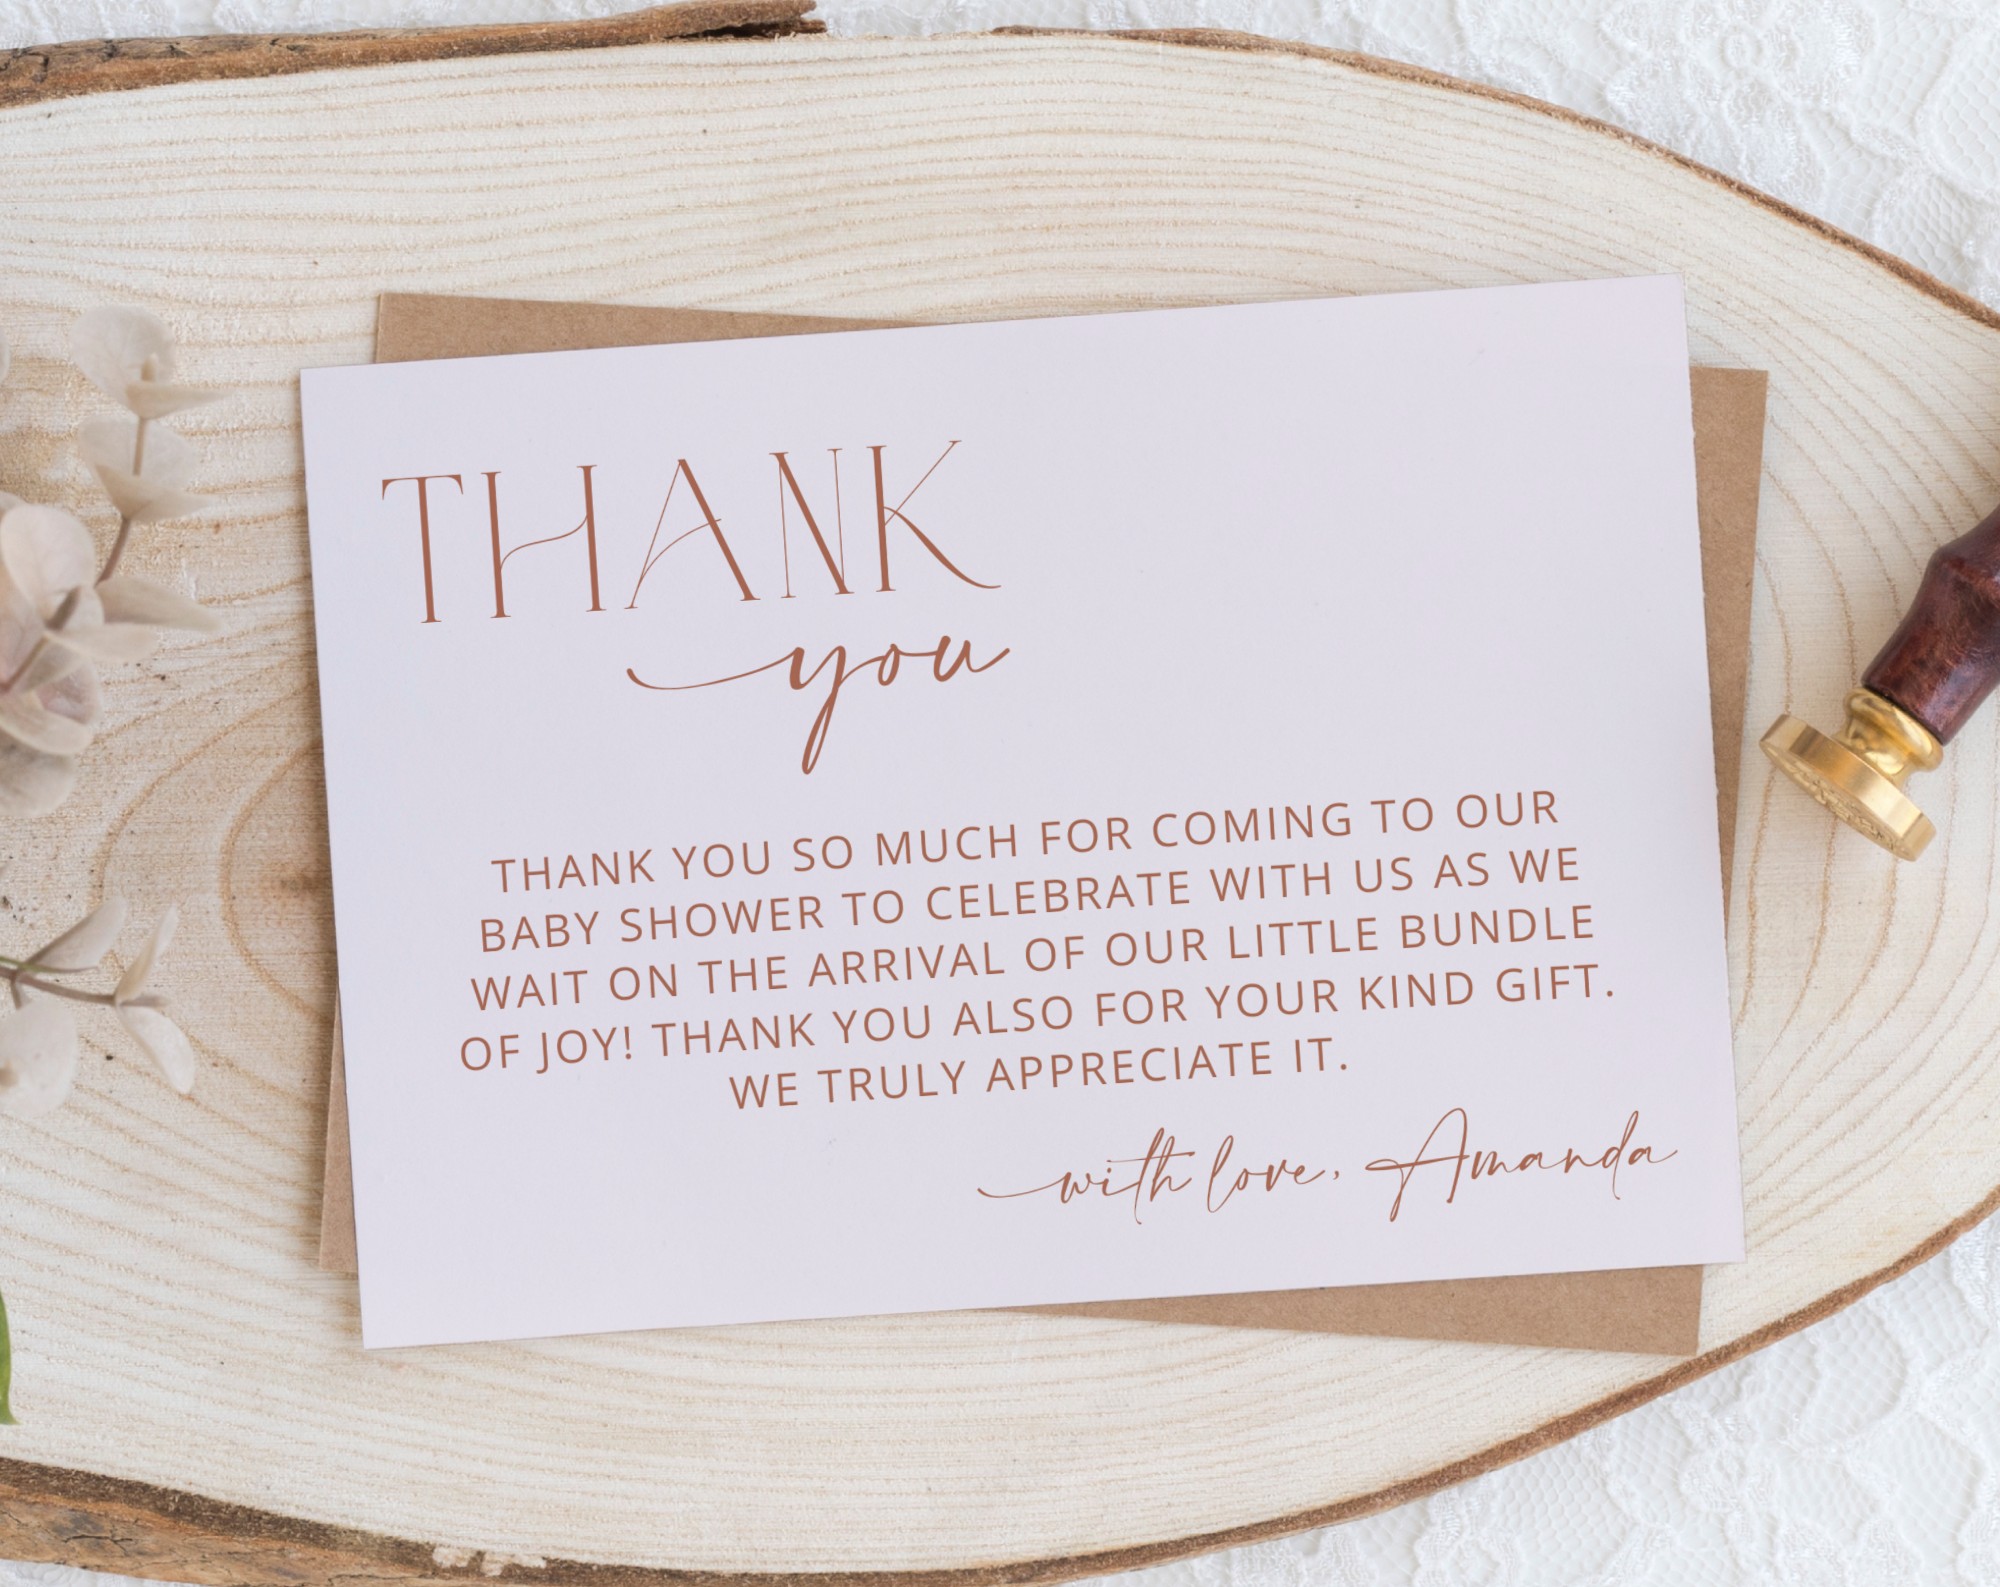 THANK
you
THANK YOU SO MUCH FOR COMING TO OUR
BABY SHOWER TO CELEBRATE WITH US AS WE
WAIT ON THE ARRIVAL OF OUR LITTLE BUNDLE
OF JOY! THANK YOU ALSO FOR YOUR KIND GIFT.
WE TRULY APPRECIATE IT.
with love, Amanda